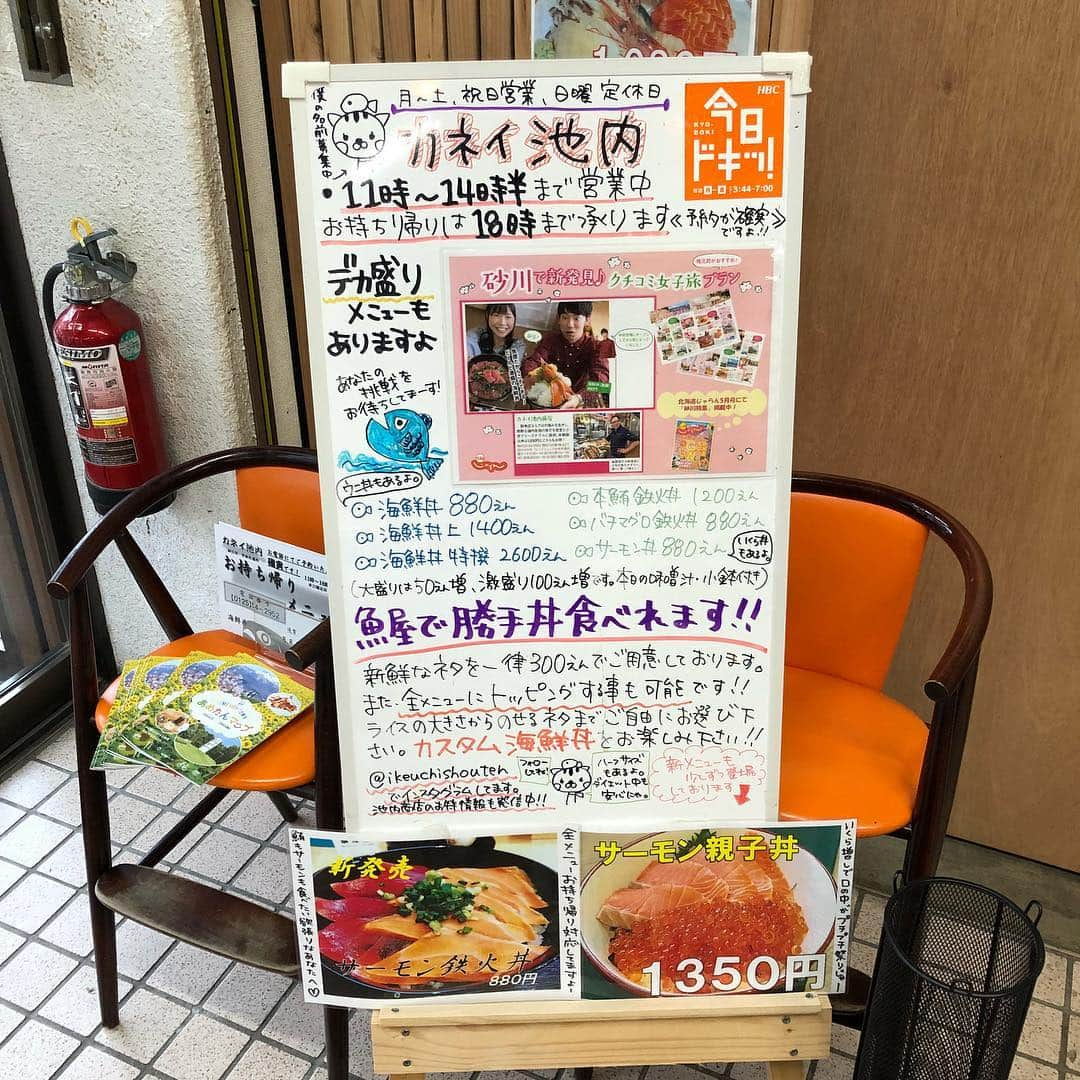 1,000円
月〜土、祝日営業、日曜定休日
僕の名前募集中
カネイ池内
HBC
今日ドキッ!
KYO-DOKI
3:44-7:00
・11時〜14時半まで営業中
お持ち帰りは18時まで承ります≪予約が確実ですよ!!≫
デカ盛り
メニューも
ありますよ
あなたの
挑戦を
お待ちしてまーす!
ウニ丼もあるよ。
砂川で新発見♪クチコミ女子旅プラン
カネイ池内商店
北海道じゃらん5月号にて
「砂川特集」掲載中!
海鮮丼 880えん
海鮮丼上 1400えん
海鮮丼 特撰 2600えん
本鮪鉄火丼 1200えん
バチマグロ鉄火丼 880えん
サーモン丼 880えん
いくら丼もあるよ。
(大盛りは50えん増、激盛り100えん増です。本日の味噌汁・小鉢付き)
魚屋で勝手丼食べれます!!
新鮮なネタを一律300えんでご用意しております。
また、全メニューにトッピングする事も可能です!!
ライスの大きさからのせるネタまでご自由にお選び下
さい。カスタム海鮮丼をお楽しみ下さい!!
@ikeuchishouten
でインスタグラムしてます。
池内商店のお特情報も発信中!!
フォローしてね!
ハーフサイズ
もあるよ。
ダイエット中も
安心にゃ。
新メニューも
少しずつ登場
しております
カネイ池内
お持ち帰り
メニュー
鮪もサーモンも食べたい欲張りなあなたへ♡
新発売
サーモン鉄火丼
880円
全メニューお持ち帰り対応してますよー
サーモン親子丼
1350円
いくら増しで口の中がプチプチ祭りやぁ